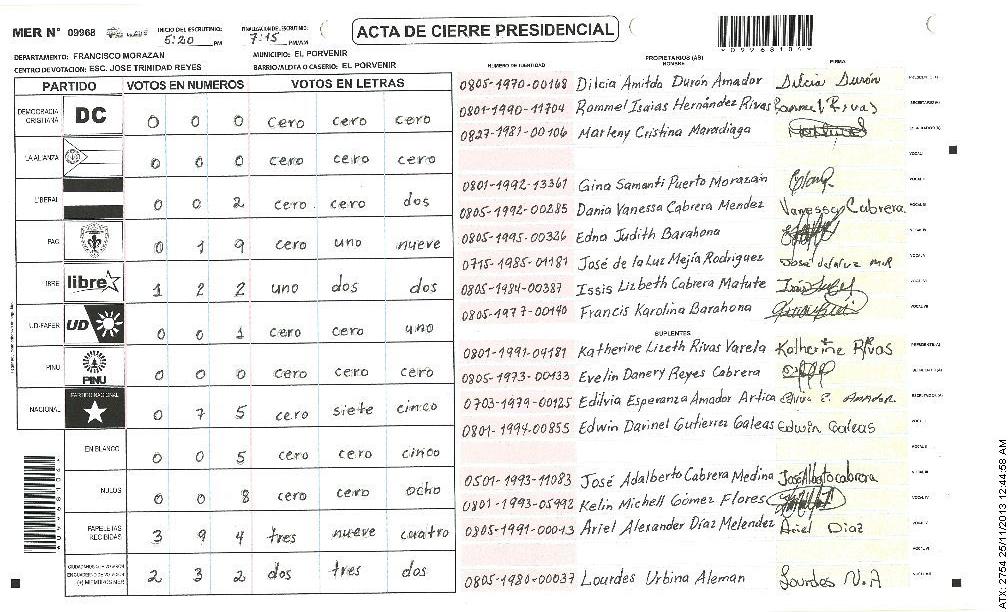 MER N° 09968
INICIO DEL ESCRUTINIO: 5:20 PM
FINALIZACION DEL ESCRUTINIO: 7:15 PM/AM
ACTA DE CIERRE PRESIDENCIAL
DEPARTAMENTO: FRANCISCO MORAZAN
MUNICIPIO: EL PORVENIR
CENTRO DE VOTACION: ESC. JOSE TRINIDAD REYES
BARRIO/ALDEA O CASERIO: EL PORVENIR
PARTIDO VOTOS EN NUMEROS VOTOS EN LETRAS
DEMOCRACIA CRISTIANA DC 0 0 0 cero cero cero
LA ALIANZA 0 0 0 cero cero cero
LIBERAL 0 0 2 cero cero dos
PAC 0 1 9 cero uno nueve
LIBRE libre 1 2 2 uno dos dos
UD-FAPER UD 0 0 1 cero cero uno
PINU PINU 0 0 0 cero cero cero
NACIONAL PARTIDO NACIONAL 0 7 5 cero siete cinco
EN BLANCO 0 0 5 cero cero cinco
NULOS 0 0 8 cero cero ocho
PAPELETAS RECIBIDAS 3 9 4 tres nueve cuatro
CIUDADANOS QUE VOTARON EN CUADERNO DE VOTACION (+) MIEMBROS MER 2 3 2 dos tres dos
NUMERO DE IDENTIDAD PROPIETARIOS (AS) NOMBRE FIRMA
0805-1970-00168 Dilcia Amitda Durón Amador Dilcia Durón PRESIDENTE (A)
0801-1990-11704 Rommel Isaias Hernández Rivas Rommel Rivas SECRETARIO(A)
0827-1981-00106 Marleny Cristina Maradiaga ESCRUTADOR(A)
VOCAL I
0801-1992-13361 Gina Samanti Puerto Morazán VOCAL II
0805-1992-00285 Dania Vanessa Cabrera Mendez Vanessa Cabrera VOCAL III
0805-1995-00326 Edna Judith Barahona VOCAL IV
0715-1985-01181 José de la Luz Mejía Rodriguez José de la luz M.R VOCAL V
0805-1984-00387 Issis Lizbeth Cabrera Matute VOCAL VI
0805-1977-00140 Francis Karolina Barahona VOCAL VII
SUPLENTES
0801-1991-04181 Katherine Lizeth Rivas Varela Katherine Rivas PRESIDENTE(A)
0805-1973-00133 Evelin Danery Reyes Cabrera SECRETARIO(A)
0703-1979-00125 Edilvia Esperanza Amador Artica E. AMADOR ESCRUTADOR(A)
0801-1994-00855 Edwin Darinel Gutierrez Galeas Edwin Galeas VOCAL I
VOCAL II
0501-1993-11083 José Adalberto Cabrera Medina José Alberto cabrera VOCAL III
0801-1993-05992 Kelin Michell Gómez Flores VOCAL IV
0805-1991-00043 Ariel Alexander Díaz Melendez Ariel Diaz VOCAL V
VOCAL VI
0805-1980-00037 Lourdes Urbina Aleman Lourdes U.A VOCAL VII
ATX 2754 25/11/2013 12:44:58 AM